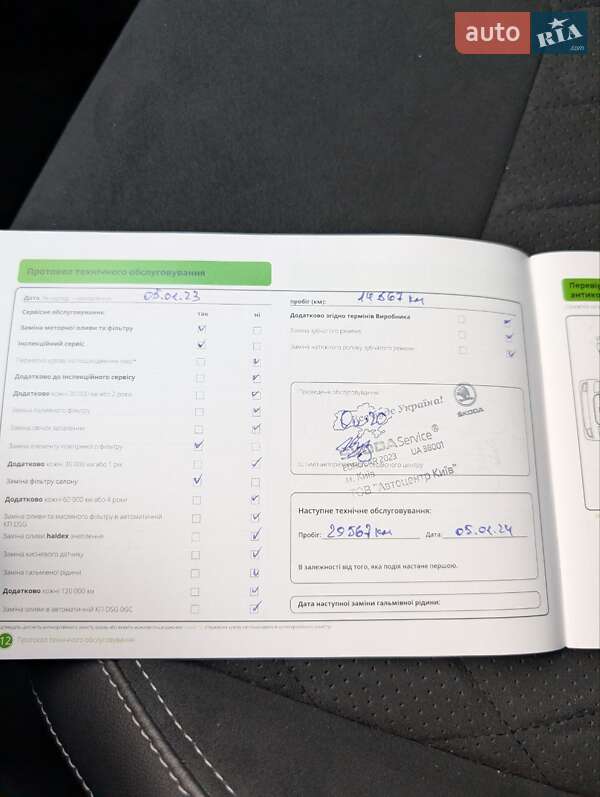 auto RIA.com
Протокол технічного обслуговування
Дата 05.01.23
пробіг (км): 14 567 км
Сервісне обслуговування: так ні
Заміна моторної оливи та фільтру
Інспекційний сервіс
Додатково до інспекційного сервісу
Додатково кожні 30 000 км або 2 роки
Заміна паливного фільтру
Заміна свічок запалення
Заміна елементу повітряного фільтру
Додатково кожні 30 000 км або 1 рік
Заміна фільтру салону
Додатково кожні 60 000 км або 4 роки
Заміна оливи та масляного фільтру в автоматичній
КП DSG
Заміна оливи haldex зчеплення
Заміна кисневого датчику
Заміна гальмівної рідини
Додатково кожні 120 000 км
Заміна оливи в автоматичній КП DSG DQC
12 Протокол технічного обслуговування
Додатково згідно термінів Виробника
Заміна зубчатого ременя
Заміна натяжного ролику зубчатого ременя
Проведене обслуговування
Україна!
ŠKODA
Service®
2023 UA 38001
м. Київ
ТОВ "Автоцентр Київ"
Наступне технічне обслуговування:
Пробіг: 29567 км Дата: 05.01.24
В залежності від того, яка подія настане першою.
Дата наступної заміни гальмівної рідини:
Перевір
антико